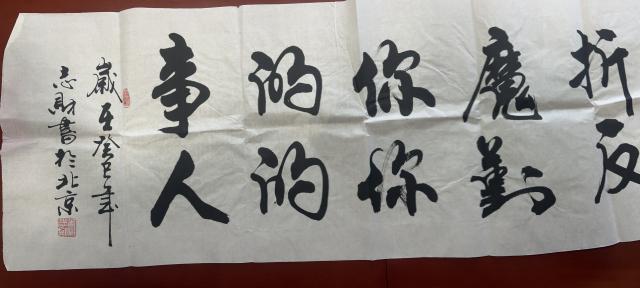 折反
魔對
你你
的的
事人
歲在癸巳年
志財書於北京